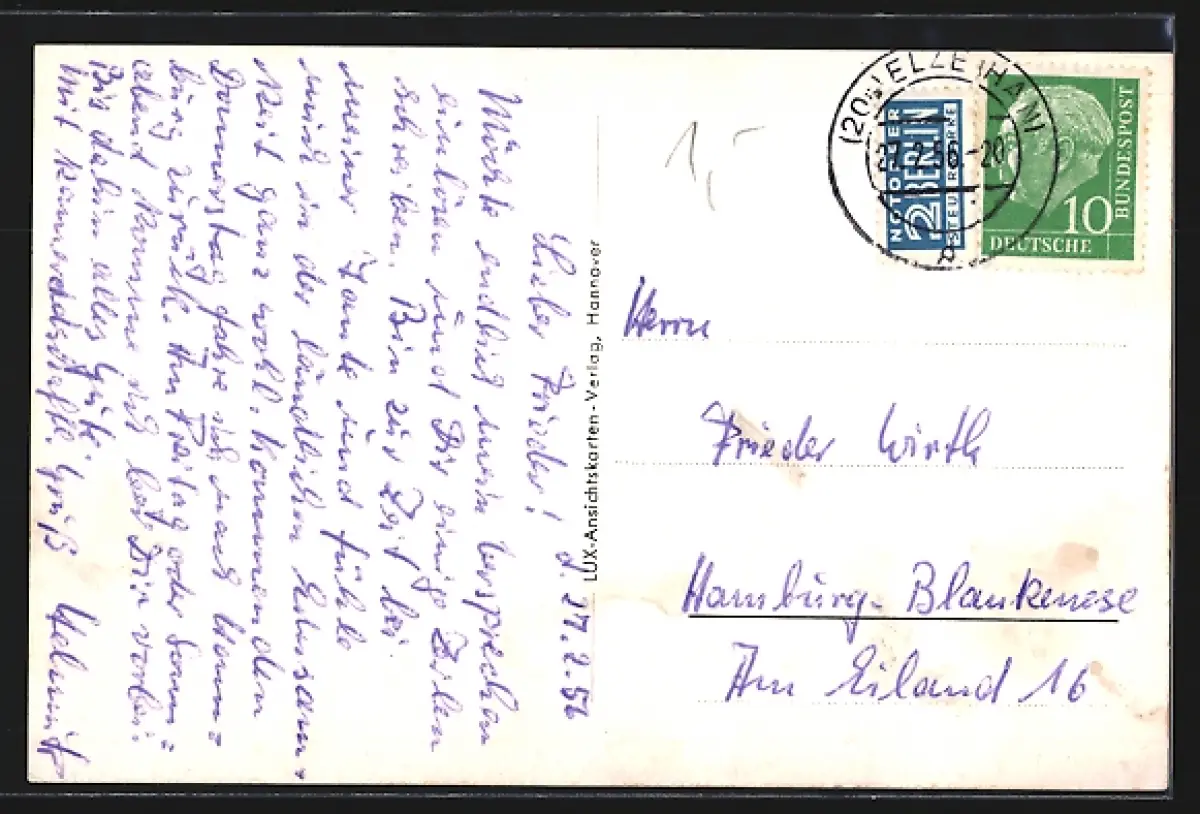 d. 27.2.56
Lieber Frieder!
Möchte endlich mein Versprechen
einlösen und Dir einige Zeilen
schreiben. Bin zur Zeit bei
meiner Tante und fühle
mich in der ländlichen Einsam-
keit ganz wohl. Kommenden
Donnerstag fahre ich nach Ham=
burg zurück. Am Freitag oder Sonn=
abend komme ich bei Dir vorbei.
Bis dahin alles Gute.
Mit kameradschaftl. Gruß Helmut
LUX-Ansichtskarten-Verlag, Hannover
1,-
(20a) ELZE (HAN)
27.2.56.-20
a
NOTOPFER
2 BERLIN
STEUERMARKE
10
DEUTSCHE
BUNDESPOST
Herrn
Frieder Wirth
Hamburg-Blankenese
Am Eiland 16